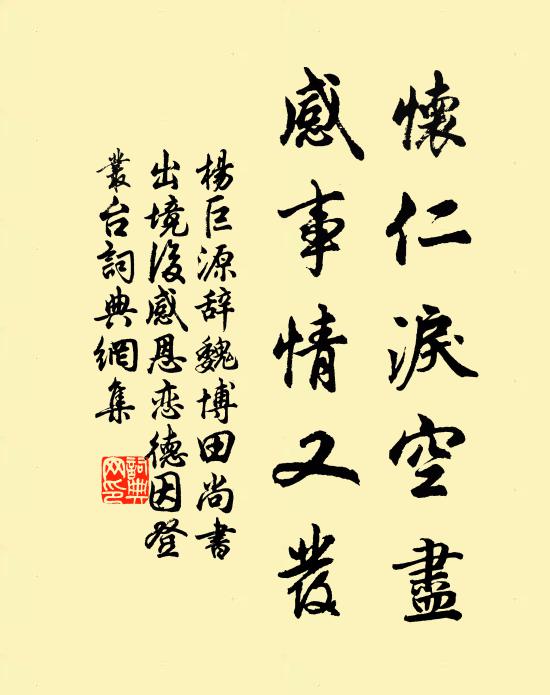 懷仁淚空盡
感事情又發
楊巨源辞魏博田尚書
出境後感恩恋德因登
叢台詞典網集
詞典
网印